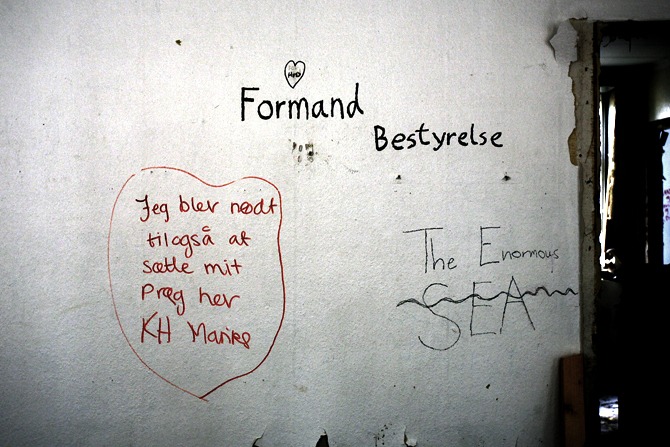 Formand
Bestyrelse
Jeg blev nødt
tilogså at
sætte mit
Præg her
KH
The Enormous
SEA